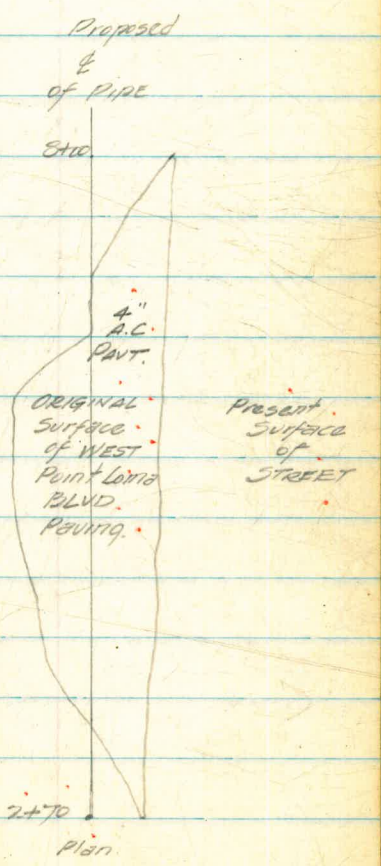 Proposed
℄
of PIPE
8+00
4"
A.C.
PAVT.
ORIGINAL
Surface
of WEST
Point Loma
BLVD
Paving.
Present
Surface
of
STREET
7+70
Plan